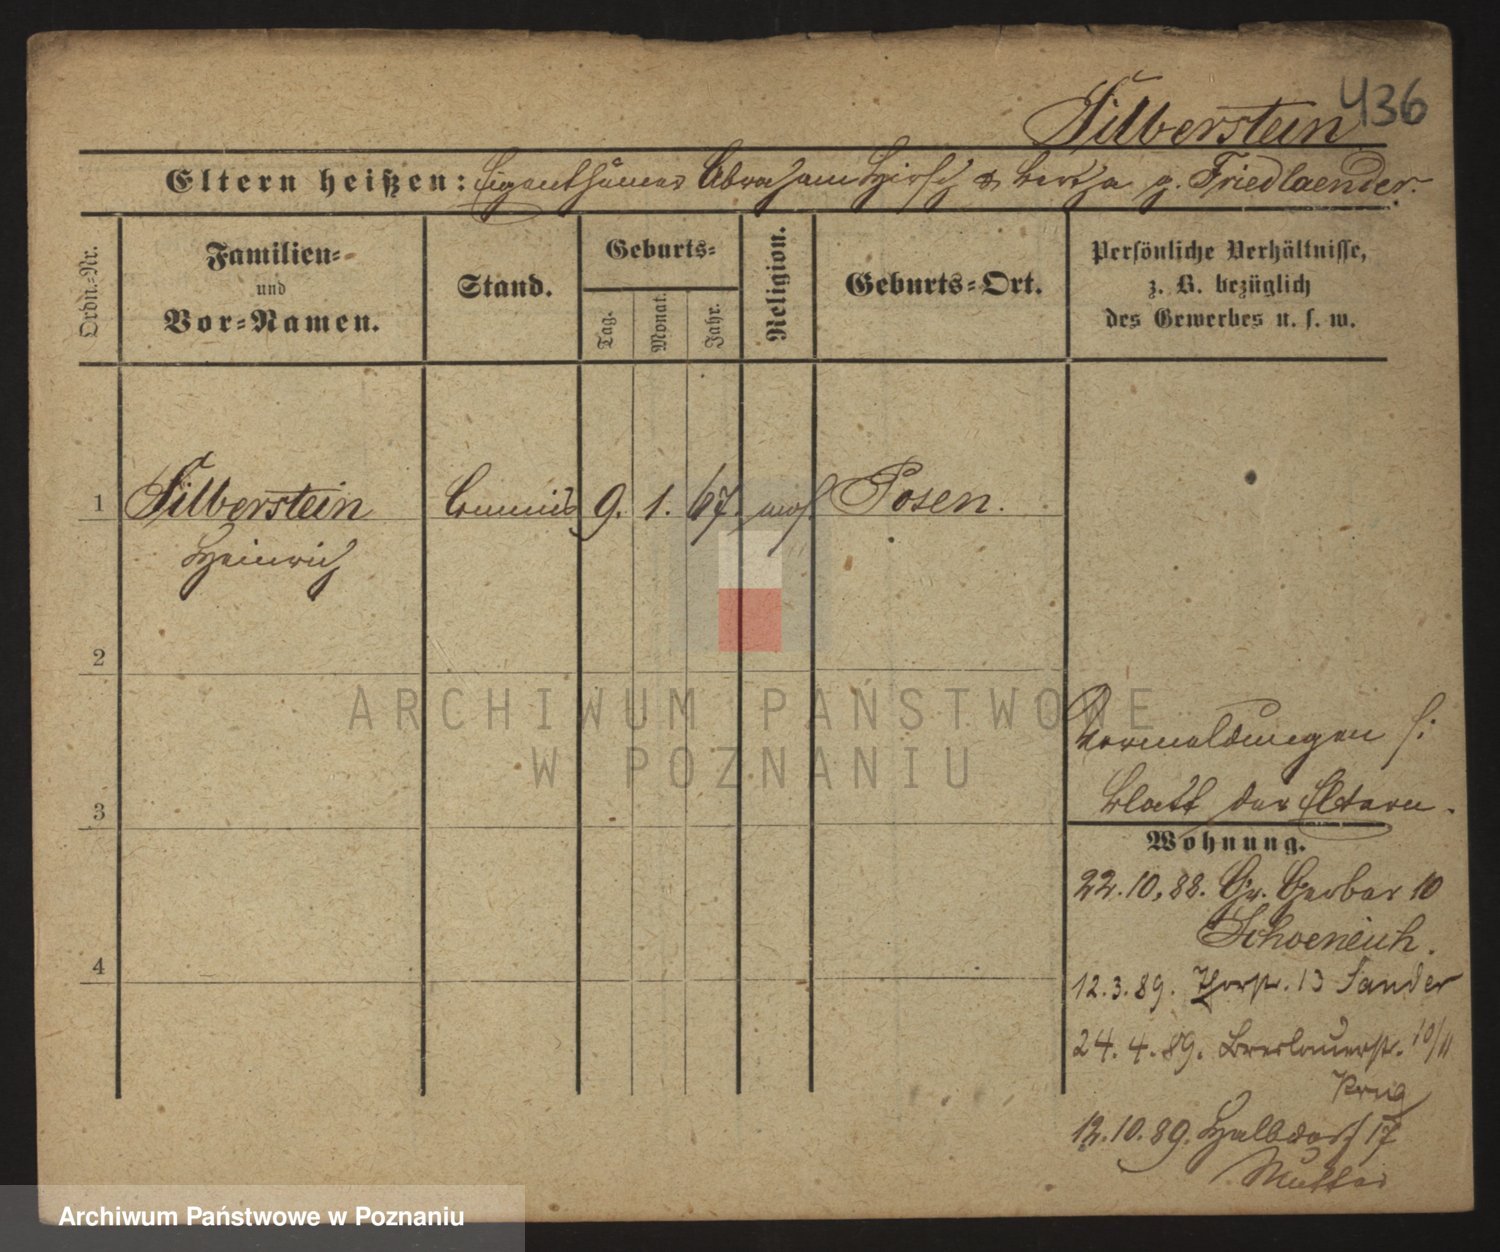 436
Silberstein
Eltern heißen: Eigenthümer Abraham Hirsch & Bertha g. Friedlaender.
Ordn.-Nr.
Familien-
und
Vor-Namen.
Stand.
Geburts-
Tag.
Monat.
Jahr.
Religion.
Geburts-Ort.
Persönliche Verhältnisse,
z. B. bezüglich
des Gewerbes u. s. w.
1 Silberstein Commis 9. 1. 67. mos. Posen.
Heinrich
2
3
4
Vormeldungen s:
Blatt der Eltern.
Wohnung.
22.10.88. Gr. Gerber 10
Schoeneich.
12.3.89. 13 Sander
24.4.89. Breslauerstr. 10/11
Krug
12.10.89. Halbdorf 17
Mutter
ARCHIWUM PAŃSTWOWE
W POZNANIU
Archiwum Państwowe w Poznaniu